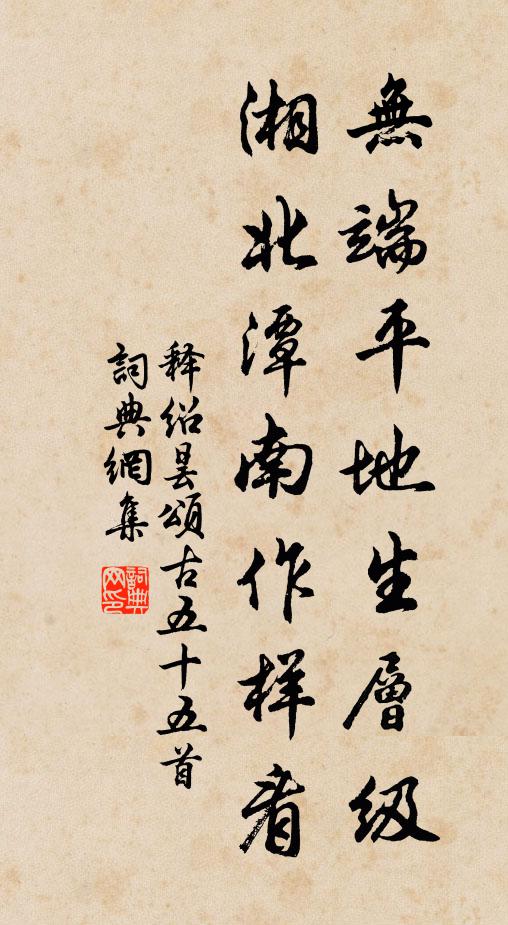 無端平地生層级
湘北潭南作样看
释紹曇頌古五十五首
詞典網集
詞典网印